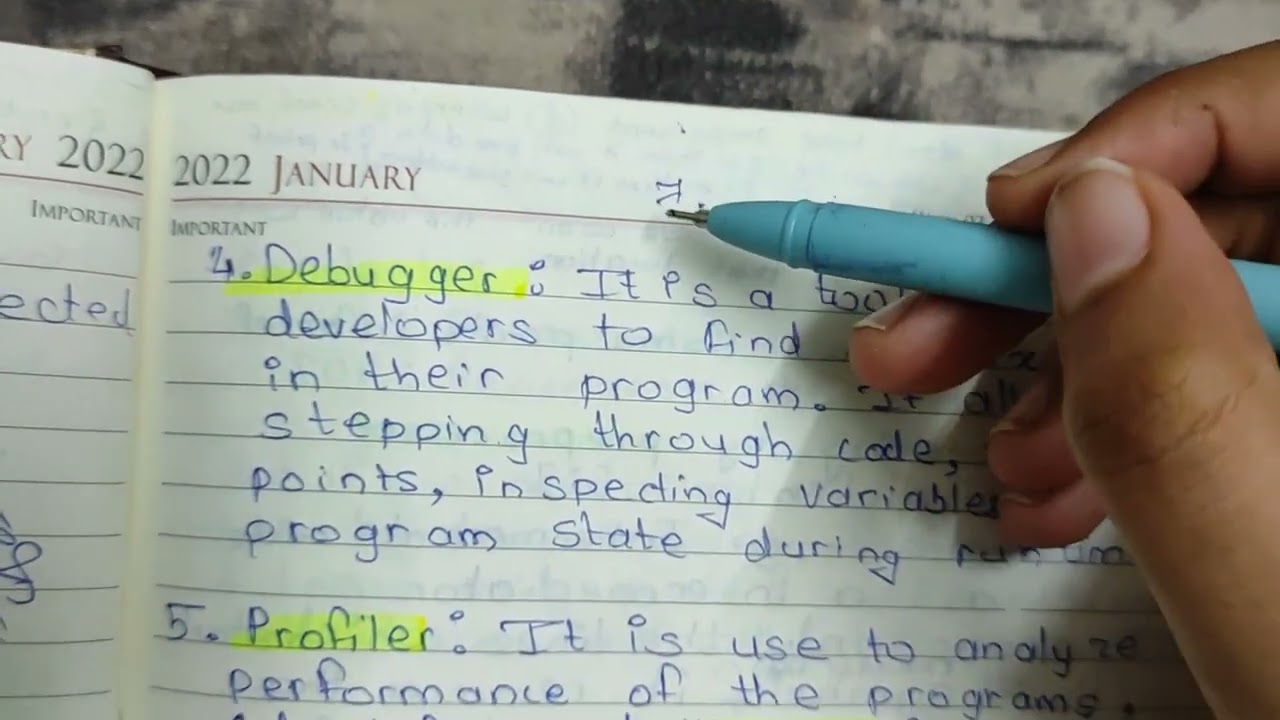 RY 2022
2022 JANUARY
IMPORTANT
IMPORTANT
ected
4. Debugger : It is a tool
developers to find
in their program. It
stepping through code,
points, inspecting variables
program state during
5. Profiler : It is use to analyze
performance of the programs.